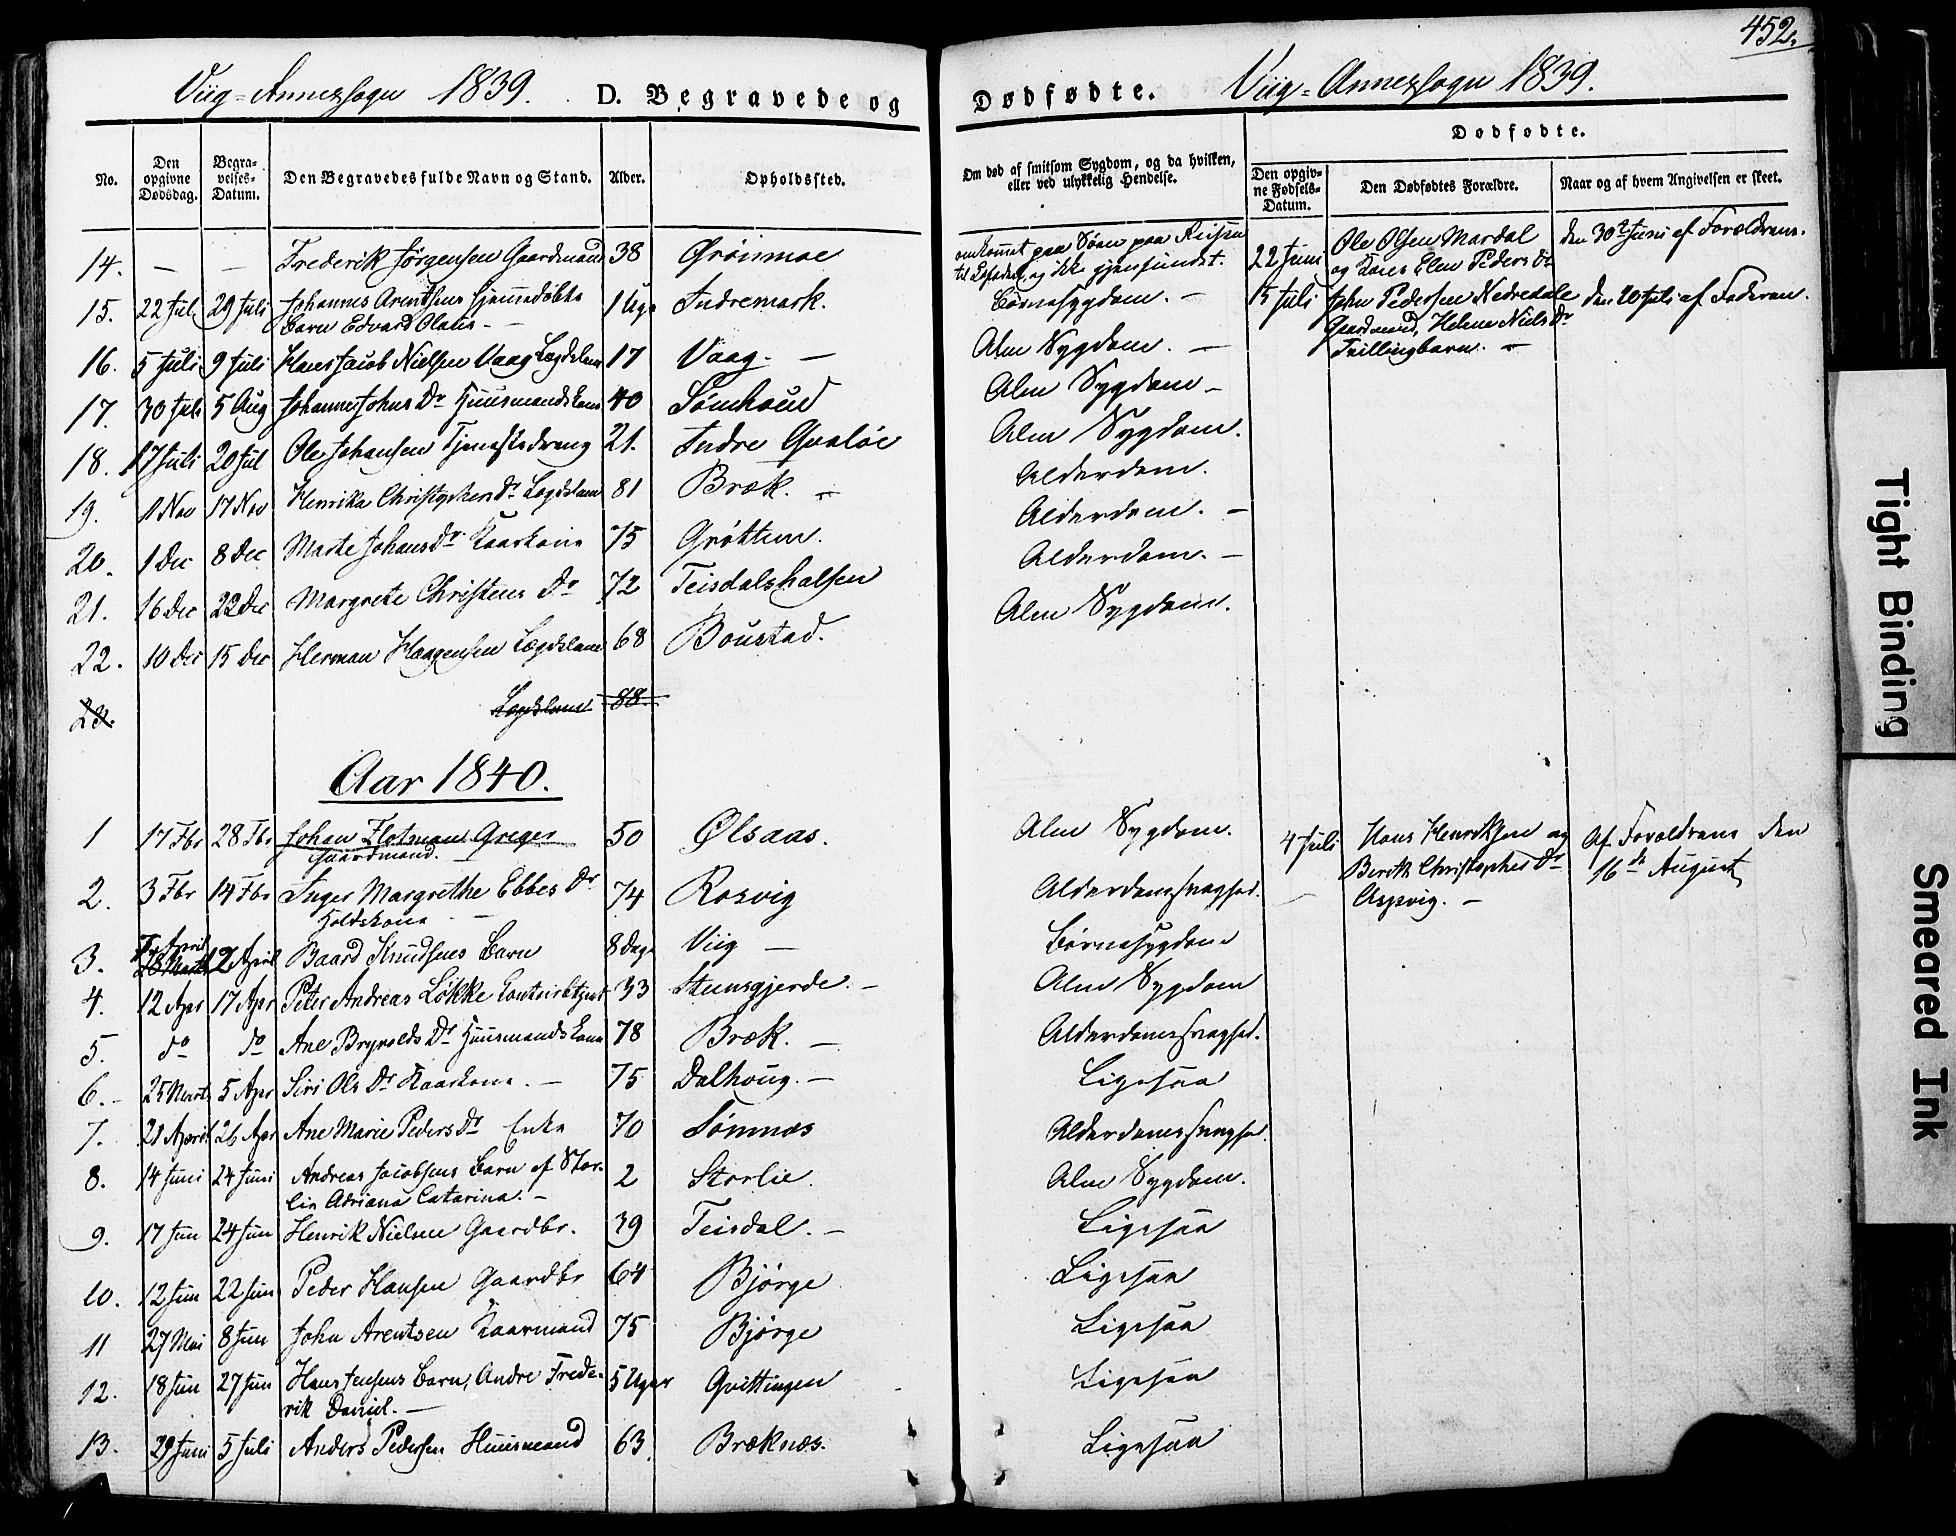 452.
Viig-Annexsogn 1839. D. Begravede og Dødfødte. Viig-Annexsogn 1839.
Dødfødte.
No. Den opgivne Dødsdag. Begravelses-Datum. Den Begravedes fulde Navn og Stand. Alder. Opholdssted. Om død af smitsom Sygdom, og da hvilken, eller ved ulykkelig Hendelse. Den opgivne Fødsels-Datum. Den Dødfødtes Forældre. Naar og af hvem Angivelsen er skeet.
14. — — Frederik Jørgensen Gaardmand 38 Grøinmoe omkommet paa Søen paa Reisen til Lofoden, og ikke gjenfundet. 22 Juni Ole Olsen Mardal og Karen Elen Peders Dr den 30te Juni af Forældrene.
15. 22 Jul 29 Juli Johannes Arentsens hjemmedøbte Barn Edvard Olaus — 1 Uge Indremark. Børnesygdom. — 15 Juli John Pedersen Nedredale Gaardmand, Helene Niels Dr Tvillingbarn. — den 20 Juli af Faderen.
16. 5 Juli 9 Juli Hans Jacob Nielsen Vaag Lægdslem 17 Vaag. — Alm Sygdom. —
17. 30 Juli 5 Aug Johanne Johns Dr Huusmandskone 40 Sømhoud Alm Sygdom —
18. 17 Juli 20 Jul Ole Johansen Tjenestedreng 21. Indre Qualøe Alm Sygdom.
19. 11 Nov 17 Nov Henrikke Christophers Dr Lægdslem 81 Bræk. — Alderdom.
20. 1 Dec 8 Dec Marte Johans Dr Kaarkone 75 Grøttem. Alderdom. —
21. 16 Dec 22 Dec Margrete Christens Dr 72 Teisdalshalsen Alderdom. —
22. 10 Dec 15 Dec Herman Haagensen Lægdslem 68 Boustad. Alm Sygdom.
23. Lægdslem 88.
Aar 1840.
1 17 Fbr 28 Fbr Johan Flotman Greger Gaardmand. 50 Ølsaas. Alm Sygdom. 4 Juli Hans Henriksen og Berith Christophers Dr Aspvig. — Af Forældrene den 16de August
2. 3 Fbr 14 Fbr Inger Margrethe Ebbes Dr Holdskone — 74 Rosvig Alderdomssvaghed.
3. 7 April 28 Marts 12 April Baard Knudsens Barn 8 Dage Viig — Børnesygdom
4. 12 Apr 17 Apr Peter Andreas Løkke 33 Steensgjerde. — Alm Sygdom
5. do do Ane Brynolds Dr Huusmandskone 78 Bræk. — Alderdomssvaghed.
6. — 25 Marts 5 Apr Siri Ols Dr Kaarkone. — 75 Dalhoug. — Ligesaa
7. 21 April 26 Apr Ane Marie Peders Dr Enke 70 Sømnæs Alderdomssvaghed.
8. 14 Juni 24 Juni Andreas Jacobsens Barn af Storlie Adriana Catarina. — 2 Storlie. Alm Sygdom.
9. 17 Jun 24 Jun Henrik Nielsen Gaardbr. 39 Teisdal. — Ligesaa
10. 12 Jun 22 Jun Peder Hansen Gaardbr 64 Bjørge Ligesaa
11 27 Mai 8 Jun John Arentsen Kaarmand 75 Bjørge Ligesaa
12. 18 Jun 27 Jun Hans Jensens Barn, Andre Frederik Daniel. — 5 Uger Qvittingen Ligesaa
13. 29 Juni 5 Juli Anders Pedersen Huusmand 63 Bræknæs. Ligesaa
Tight Binding
Smeared Ink